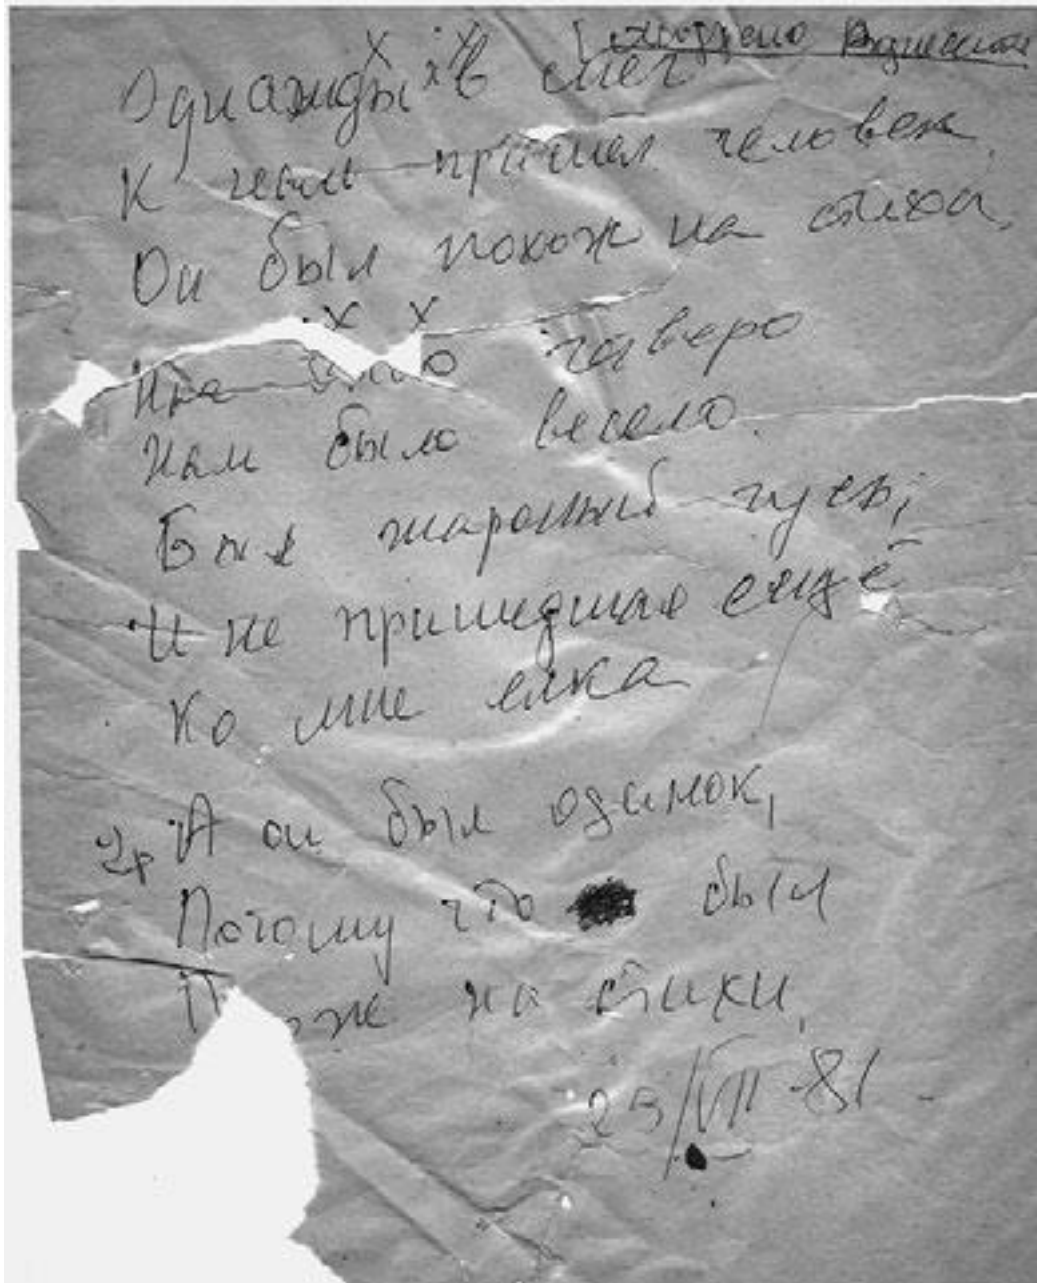 Однажды в снег
К нам пришел человек,
Он был похож на стихи,
Нас было четверо
Нам было весело.
Был жаренный гусь,
И не пришедшая ещё
Ко мне елка
А он был одинок,
Потому что был
на стихи,
29/VII-81